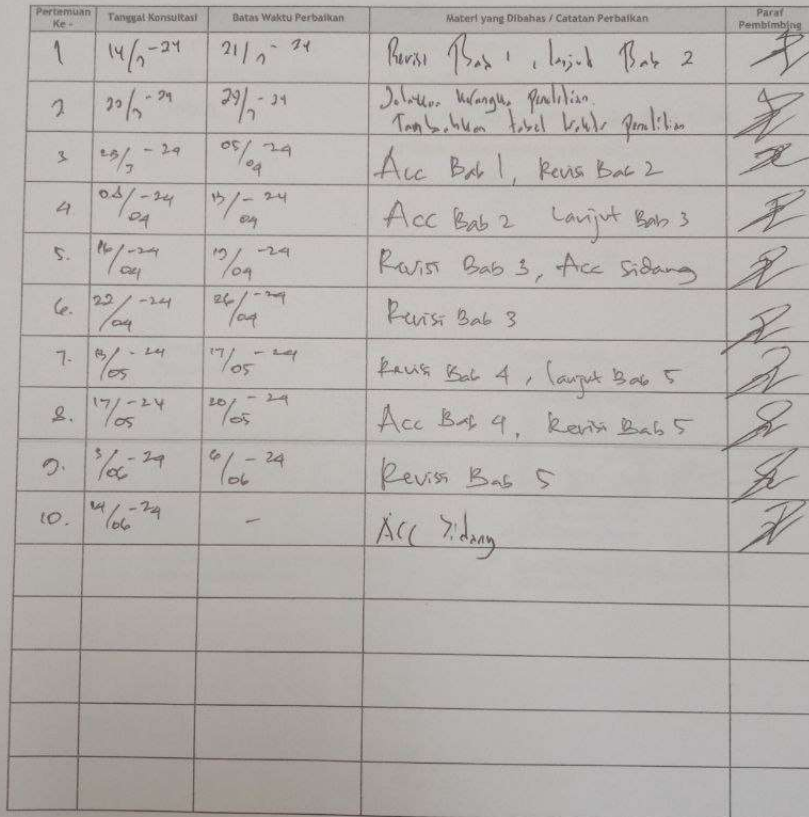 Pertemuan Ke - Tanggal Konsultasi Batas Waktu Perbaikan Materi yang Dibahas / Catatan Perbaikan Paraf Pembimbing
1 14/3-24 21/3-24 Revisi Bab 1, lanjut Bab 2
2 22/3-24 29/3-24 kerangka penelitian.
Tambahkan tabel penelitian
3 /3-24 05/04-24 Acc Bab 1, Revisi Bab 2
4 /04-24 /04-24 Acc Bab 2 Lanjut Bab 3
5. 16/04-24 19/04-24 Revisi Bab 3, Acc Sidang
6. 22/04-24 26/04-24 Revisi Bab 3
7. 13/05-24 17/05-24 Revisi Bab 4, lanjut Bab 5
8. 17/05-24 20/05-24 Acc Bab 4, Revisi Bab 5
9. 3/06-24 6/06-24 Revisi Bab 5
10. /06-24 - Acc Sidang